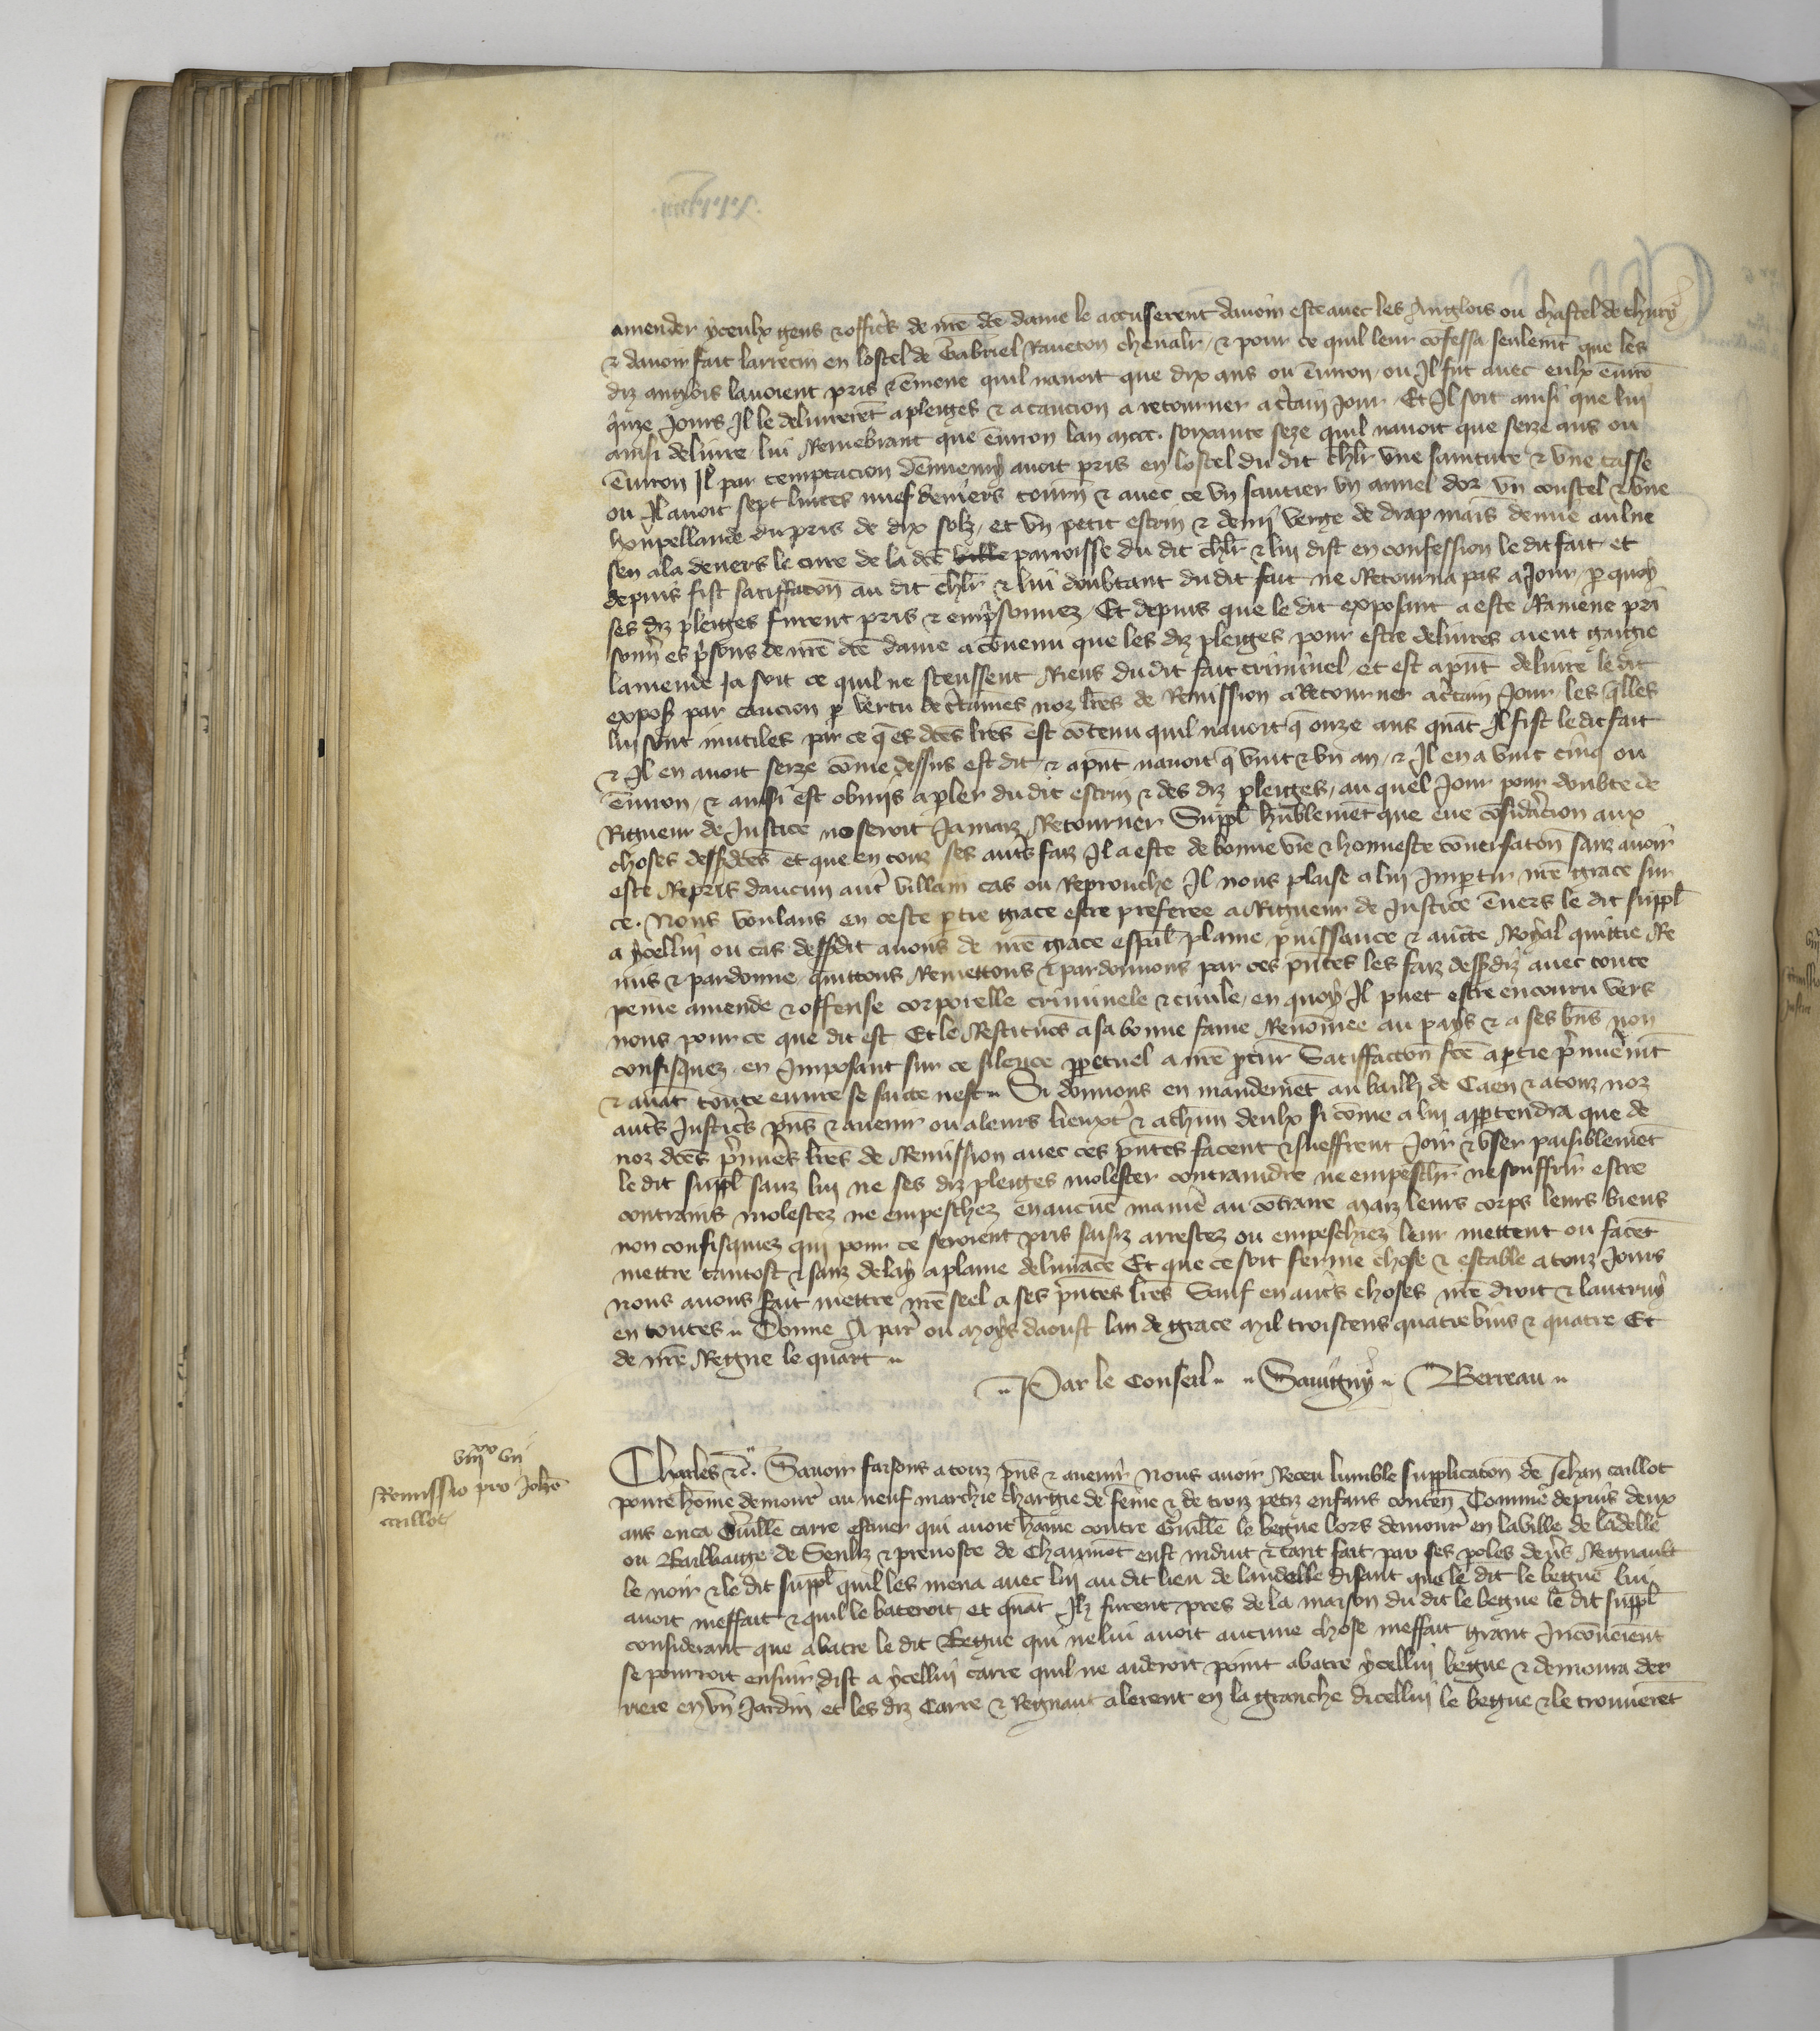 amender yceulx gens & offic's de nre dce dame le accuserent davoir este avec les Anglois ou chastel de thury
& davoir fait larrecin en lostel de Gabriel Raveton chevalr / & pour ce quil leur cofessa seulemt que les
diz anglois lavoient pris & emene quil navoit que dix ans ou environ / ou Il fut avec eulx enviro
q'nze Jours Il le delivreret a pleiges & a caucion a retourner a c'tain Jour Et Il soit ainsi que lui
ainsi delivre lui Remebrant que environ lan mccc. soixante seze quil navoit que seize ans ou
environ Il par temptacion dennemy avoit pris en lostel du dit chlr une sainture & une tasse
ou Il avoit sept livres nuef deniers tourn & avec ce un sautier un annel dor un coustel & une
houpellande du pris de dix solz / et un petit escrin & demi verge de drap mains demie aulne
sen ala devers le cure de la dce ville parroisse du dit chlr & lui dist en confession le dit fait et
depuis fist satiffacon au dit chlr & lui doubtant du dit fait ne Retourna pas a Jour / p quoy
ses diz pleiges furent pris & emp'sonnez / Et depuis que le dit exposant a este Ramene pri
sonn' es p'sons de nre dce dame a covenu que les diz pleiges pour estre delivres aient gaigie
lamende Ja soit ce quil ne sceussent Riens du dit fait criminel / et est apnt delivre le dit
expos par caucion p vertu de c'taines noz lres de Remission a Retourner a c'tain Jour / les qlles
lui sont inutiles par ce q es dces lres est cotenu quil navoit q onze ans quat Il fist le dit fait
& Il en avoit seize come dessus est dit / & apnt navoit q vint & un an / & Il en a vint cinq ou
environ / & aussi est obmis a pler du dit escrin & des diz pleiges / au quel Jour pour doubte de
Rigueur de Justice noseroit Jamaiz Retourner Suppl humblemet que eue cosid'acion aux
choses dessdces et que en touz ses aut's faiz Il a este de bonne vie & honneste coversacon sanz avoir
este Repris daucun aut' villain cas ou Reprouche Il nous plaise a lui Impertir nre grace sur
ce. Nous voulans en ceste ptie grace estre preferee a Rigueur de Justice envers le dit suppl
a ycellui ou cas dessdit avons de nre grace espal plaine puissance & aucte Royal quittie Re
mis & pardonne / quittons Remettons & pardonnons par ces pntes les faiz dessdiz avec toute
peine amende & offense corporelle criminele & civile / en quoy Il puet estre encouru vers
nous pour ce que dit est Et le Restituos a sa bonne fame Renomee au pays & a ses bns non
confisquez / en Imposant sur ce silence ppetuel a nre pcur Satiffaccon fce a ptie p'mieremt
& avat toute euvre se faicte nest Si donnons en mandemet au bailli de Caen & a touz noz
aut's Justic's pns & avenir ou a leurs lieuxt' & a chun deulx si come a lui apptendra que de
noz dces p'mie's lres de Remission avec ces pntes facent & sueffrent Joir & user paisiblemet
le dit suppl sanz lui ne ses diz pleiges molester contraindre ne empeschr ne souffrir estre
contrains molestez ne empeschez en aucue manie au cotraire maiz leurs corps leurs biens
non confisquez qui pour ce seroient pris saisiz arrestez ou empeschiez leur mettent ou facet
mettre tantost & sanz delay a plaine delivrace Et que ce soit ferme chose & estable a touz Jours
nous avons fait mettre nre seel a ses pntes lres Sauf en aut's choses nre droit & lautruy
en toutes Donne A par' ou moys daoust lan de grace mil troiscens quatrevins & quatre Et
de nre Regne le quart
Par le Conseil Savigny Berreau
viiixx vii
Remissio pro Johe
caillot
Charles &c. Savoir faisons a touz pns & avenir Nous avoir Receu lumble supplicacon de Jehan caillot
povre home demour' au neuf marchie chargie de feme & de troiz petiz enfans conten Comme depuis deux
ans enca Guille carre escuier qui avoit haine contre Guille le begue lors demour' en la ville de ladelle
ou Bailliage de Senliz & prevoste de Chaumot eust induit & tant fait par ses poles dev's Regnault
le noir & le dit suppl quil les mena avec lui au dit lieu de landelle disant que le dit le begue lui
avoit meffait & quil le bateroit / et quat Ilz furent pres de la maison du dit le begue le dit suppl
considerant que abatre le dit Begue qui ne lui avoit aucune chose meffait grant Incovenient
se pourroit ensuir dist a ycellui carre quil ne aideroit point abatre ycellui begue & demoura der
riere en un Jardin et les diz Carre & Regnaut alerent en la granche dicellui le begue & le trouveret